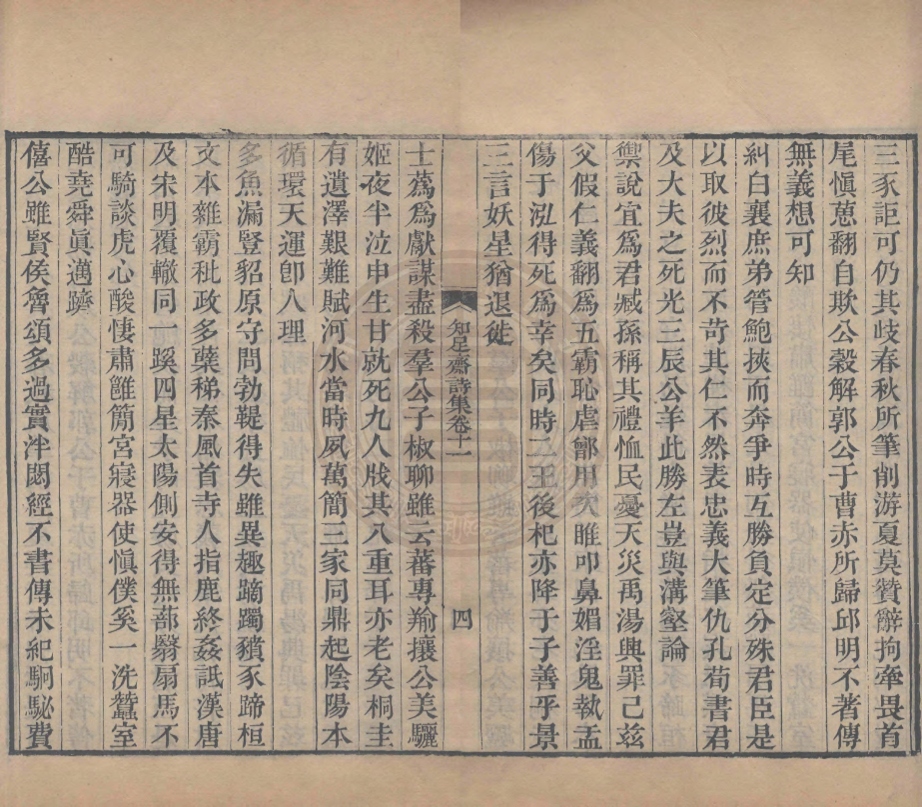 三豕詎可仍其歧春秋所筆削游夏莫贊辭拘牽畏首
尾愼葸翻自欺公穀解郭公于曹赤所歸邱明不著傳
無義想可知
糾白襄庶弟管鮑挾而奔爭時互勝負定分殊君臣是
以取彼烈而不苛其仁不然表忠義大筆仇孔荀書君
及大夫之死光三辰公羊此勝左豈與溝壑論
禦說宜爲君臧孫稱其禮恤民憂天災禹湯興罪己茲
父假仁義翻爲五霸恥虐鄫用次睢叩鼻媚淫鬼執盂
傷于泓得死爲幸矣同時二王後杞亦降于子善乎景
三言妖星猶退徙
知足齋詩集卷十一
四
士蔿爲獻謀盡殺羣公子椒聊雖云蕃專羭攘公美驪
姬夜半泣申生甘就死九人戕其八重耳亦老矣桐圭
有遺澤艱難賦河水當時夙萬簡三家同鼎起陰陽本
循環天運卽人理
多魚漏豎貂原守問勃鞮得失雖異趣蹢躅豶豕蹄桓
文本雜霸秕政多蘖稊秦風首寺人指鹿終姦詆漢唐
及宋明覆轍同一蹊四星太陽側安得無蔀翳扇馬不
可騎談虎心酸悽肅雝簡宮寢器使愼僕奚一洗蠶室
酷堯舜眞邁躋
僖公雖賢侯魯頌多過實泮閟經不書傳未紀駉駜費